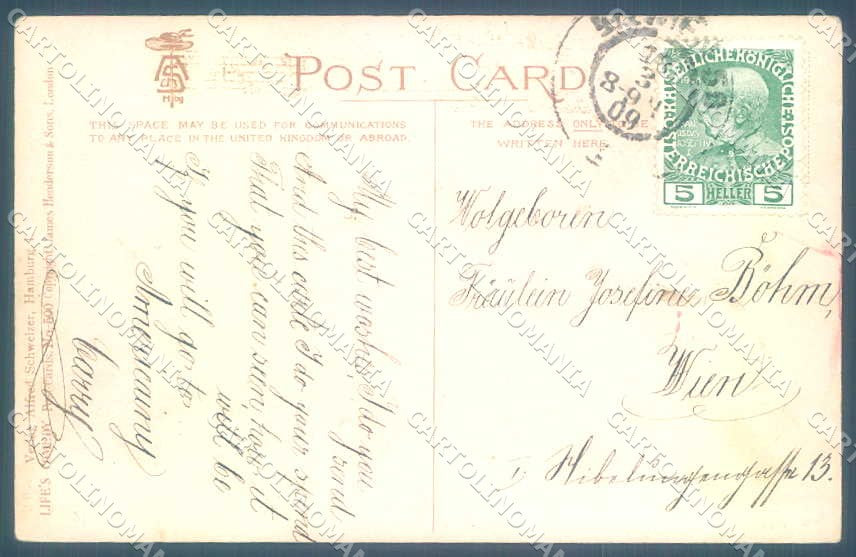 POST CARD
THIS SPACE MAY BE USED FOR COMMUNICATIONS
TO ANY PLACE IN THE UNITED KINGDOM OR ABROAD.
THE ADDRESS ONLY
WRITTEN HERE.
8-9
09
5 HELLER 5
Verlag Alfred Schweizer, Hamburg
LIFE'S COMEDY Post Cards. Copyright James Henderson & Sons, London
My best washes, I do you
send
And this carde I do your send
That you can sien, how it
will be
If you will go to
Amercainy
Wolgeboren
Fräulein Josefine Böhm,
Wien
I, Nibelungengasse 13.
CARTOLINOMANIA